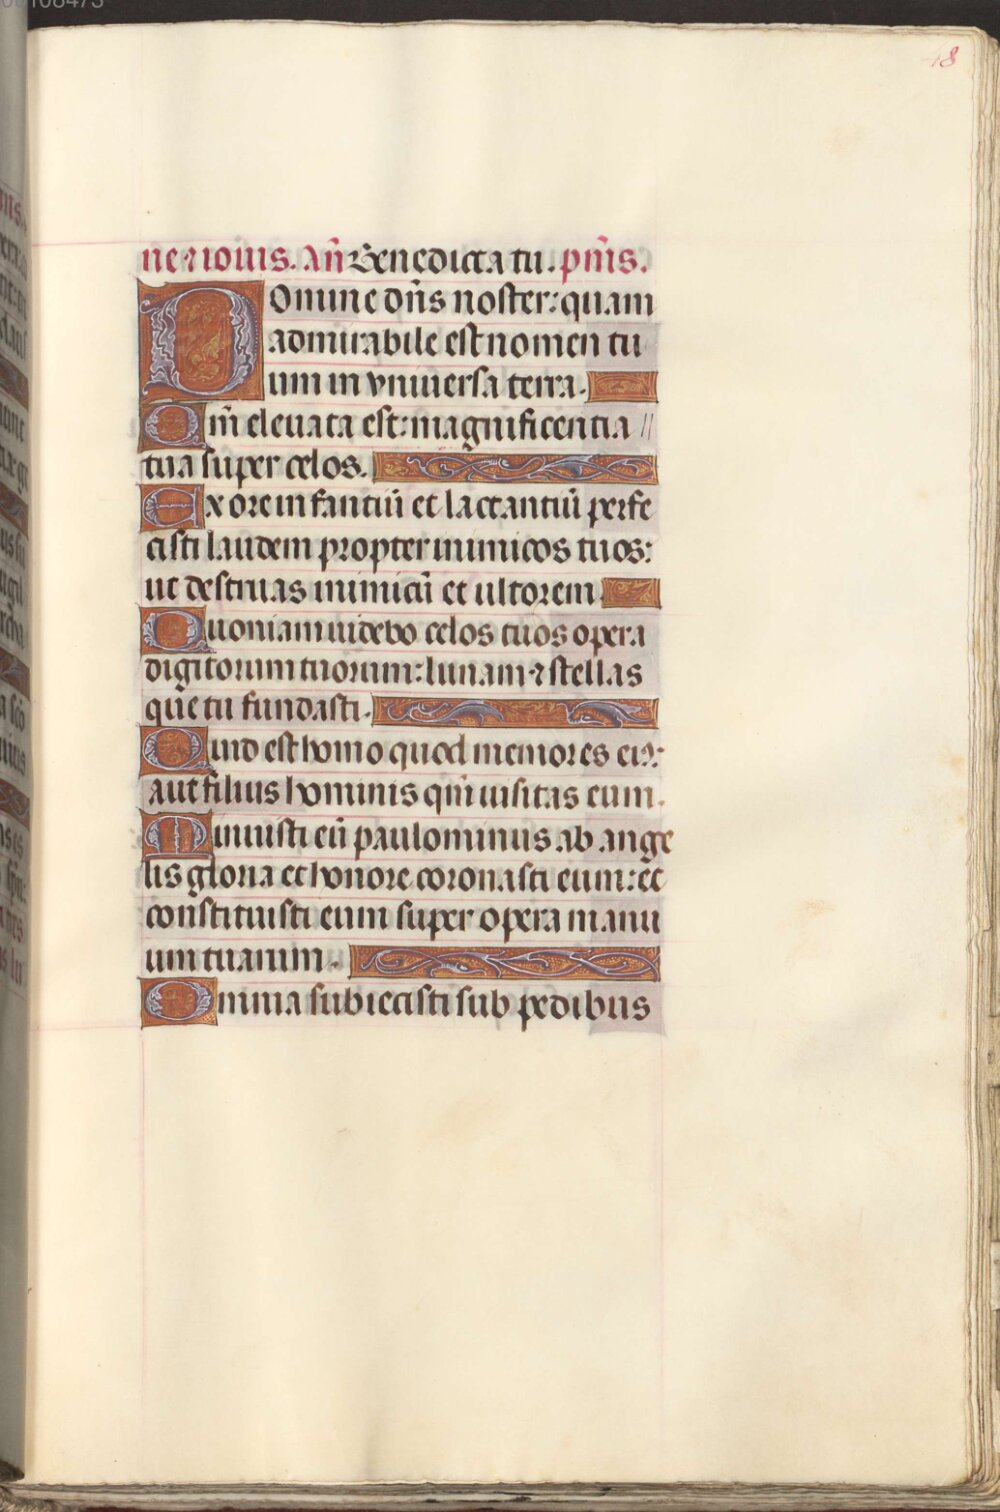 48
ne ⁊ iouis. Añ Benedicta tu. pm̃s.
Domine dñs noster: quam
admirabile est nomen tu
um in vniuersa terra.
Qm̃ eleuata est: magnificentia //
tua super celos.
Ex ore infantiũ et lactantiũ perfe
cisti laudem propter inimicos tuos:
ut destruas inimicũ et ultorem.
Quoniam uidebo celos tuos opera
digitorum tuorum: lunam ⁊ stellas
que tu fundasti.
Quid est homo quod memores eiꝰ:
aut filius hominis qm̃ uisitas eum.
Minuisti eũ paulominus ab ange
lis gloria et honore coronasti eum: et
constituisti eum super opera manu
um tuarum.
Omnia subiecisti sub pedibus